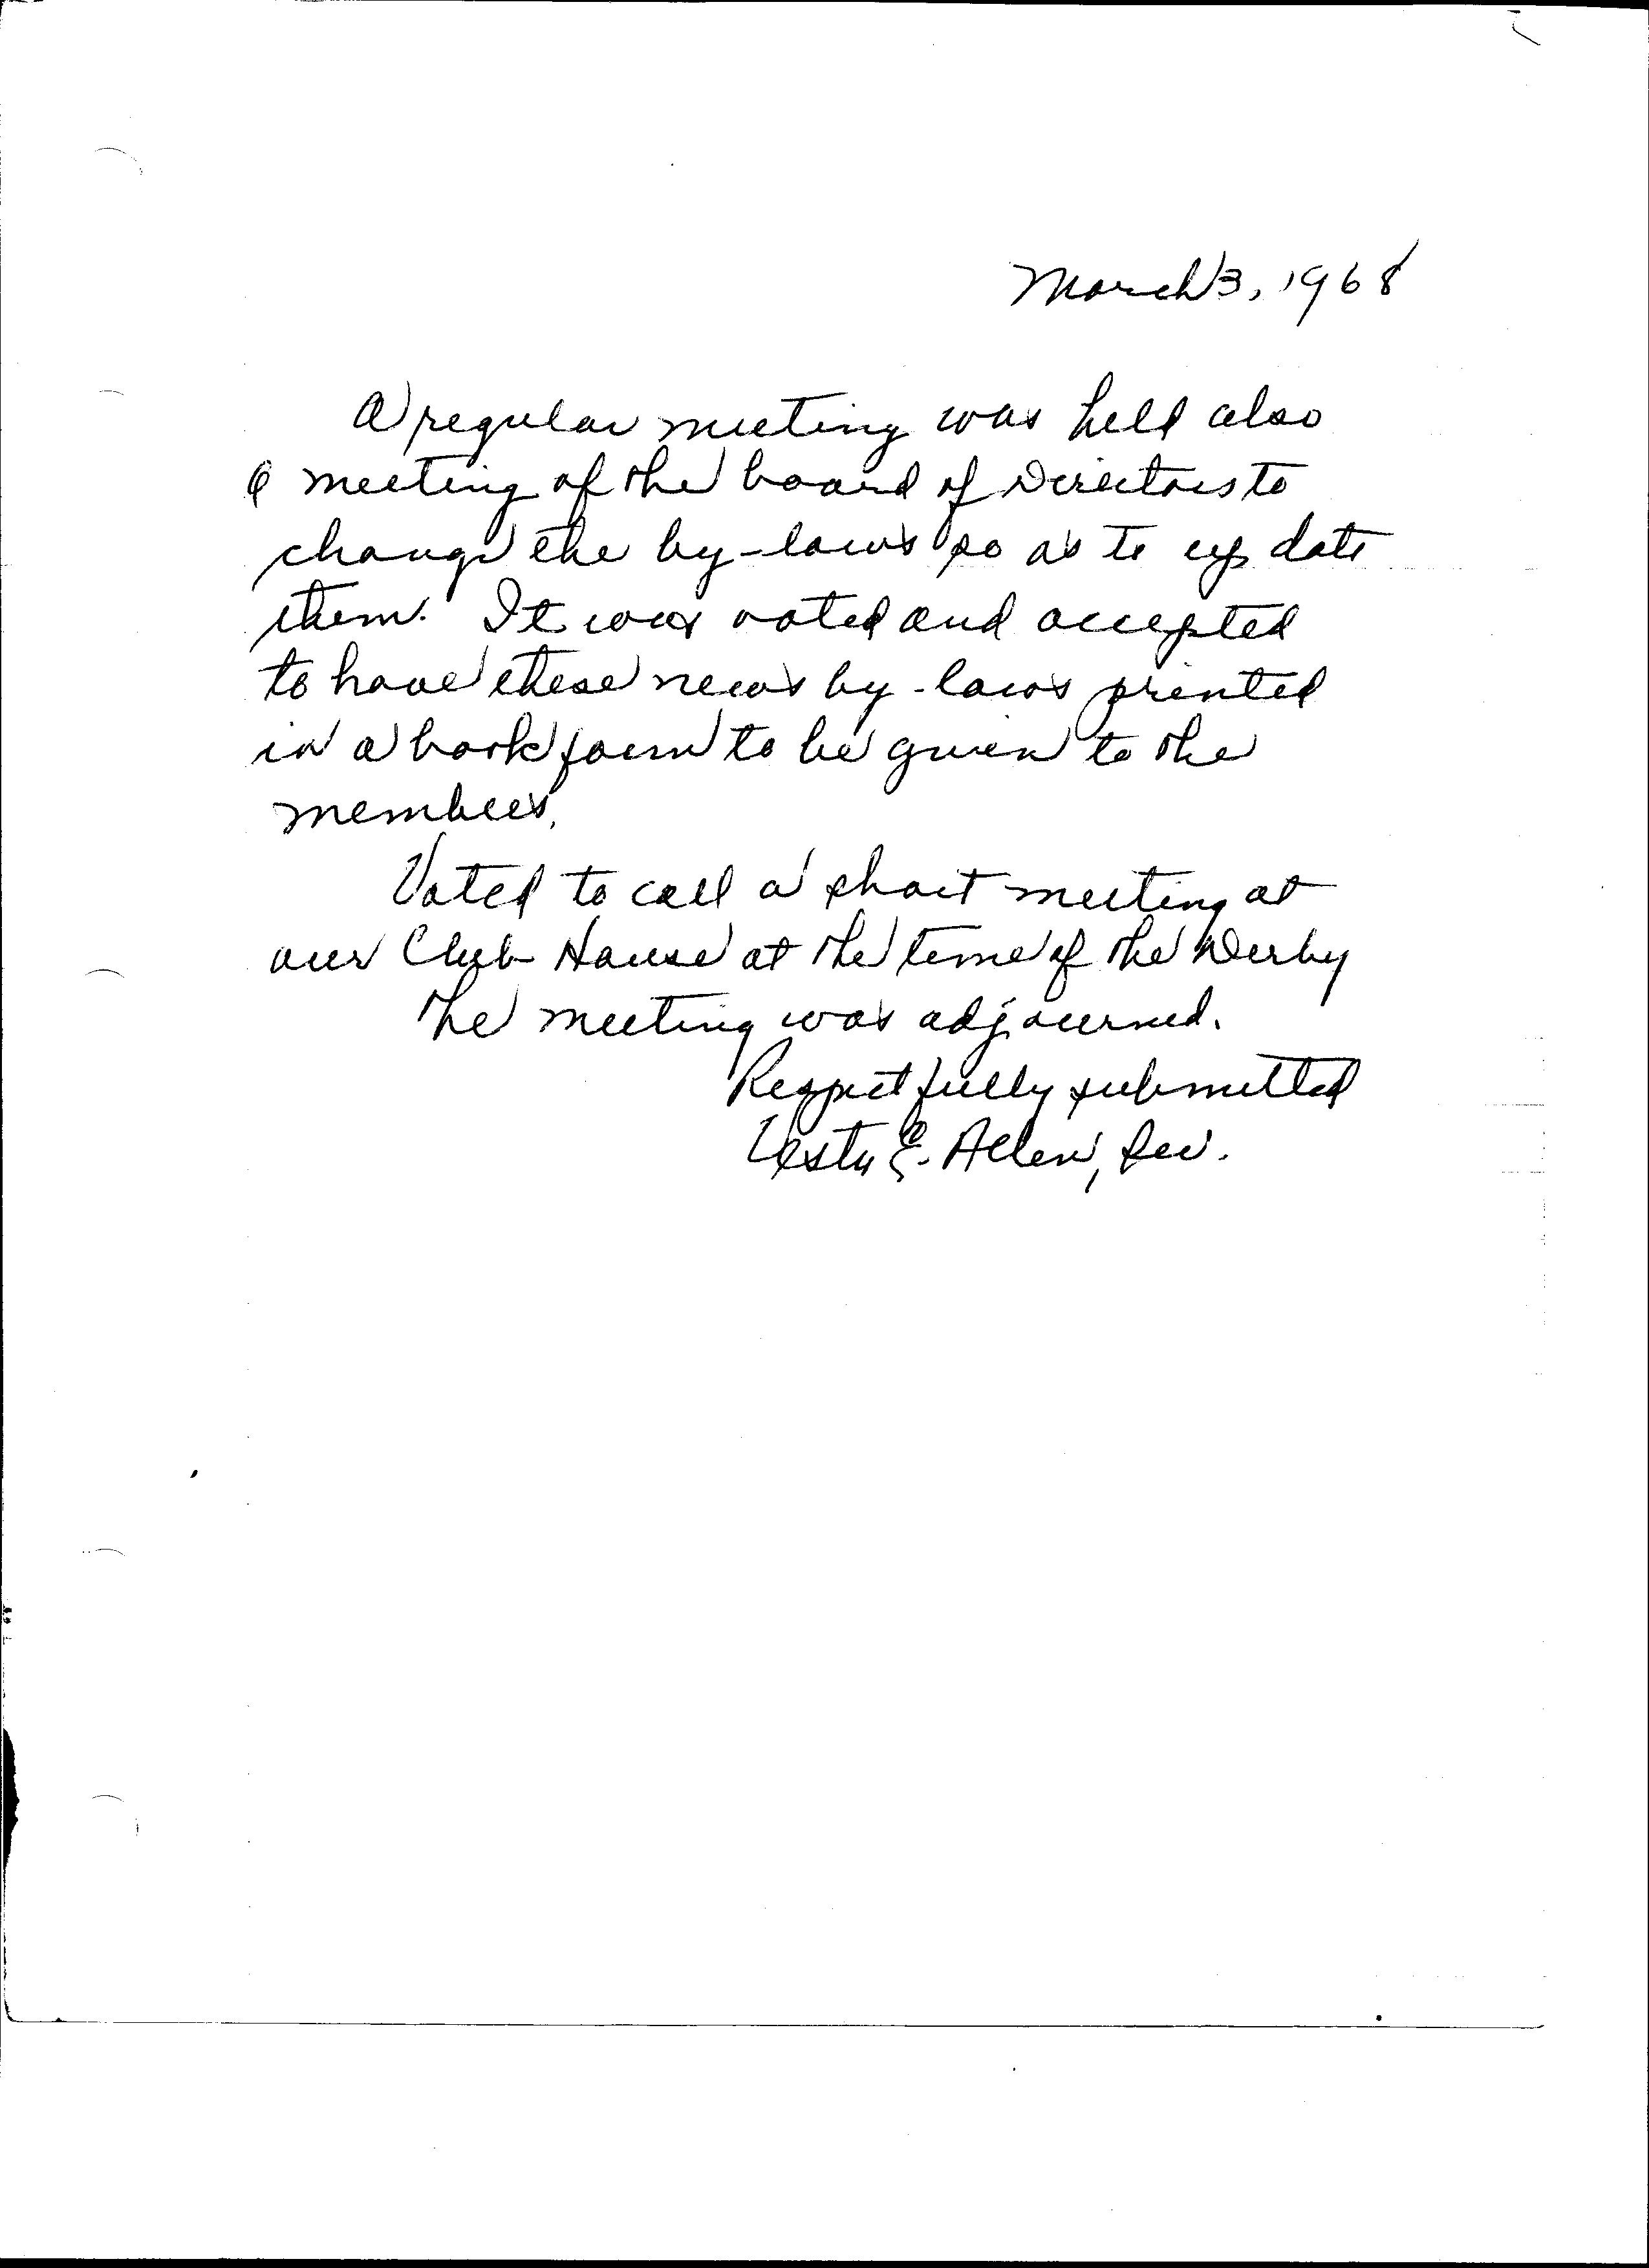 March 3, 1968
A regular meeting was held also
a meeting of the board of Directors to
change the by-laws so as to up date
them. It was voted and accepted
to have these new by-laws printed
in a book form to be given to the
members.
Voted to call a short meeting at
our Club House at the time of the Derby
The meeting was adjourned.
Respectfully submitted
E. Allen, Sec.